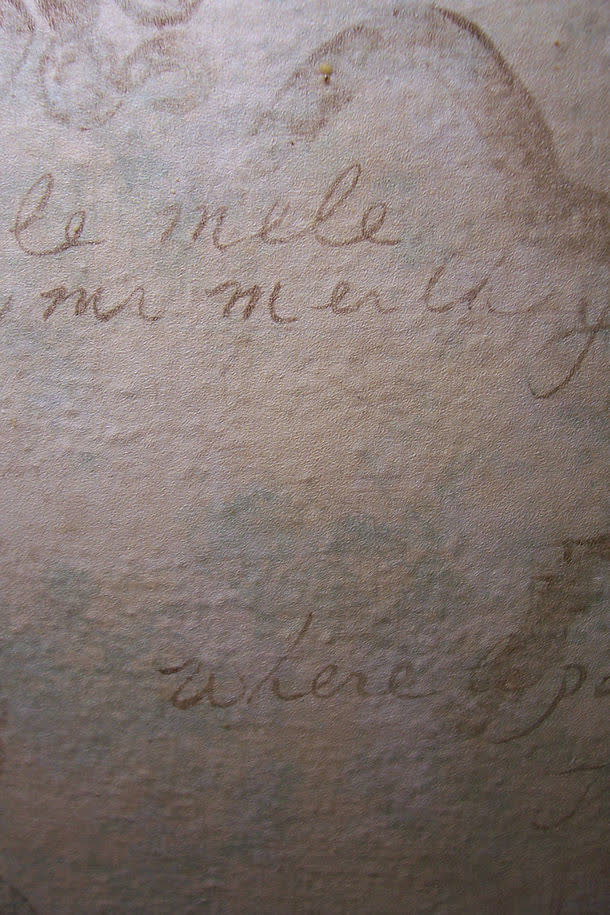 le mele
mr merthy
where